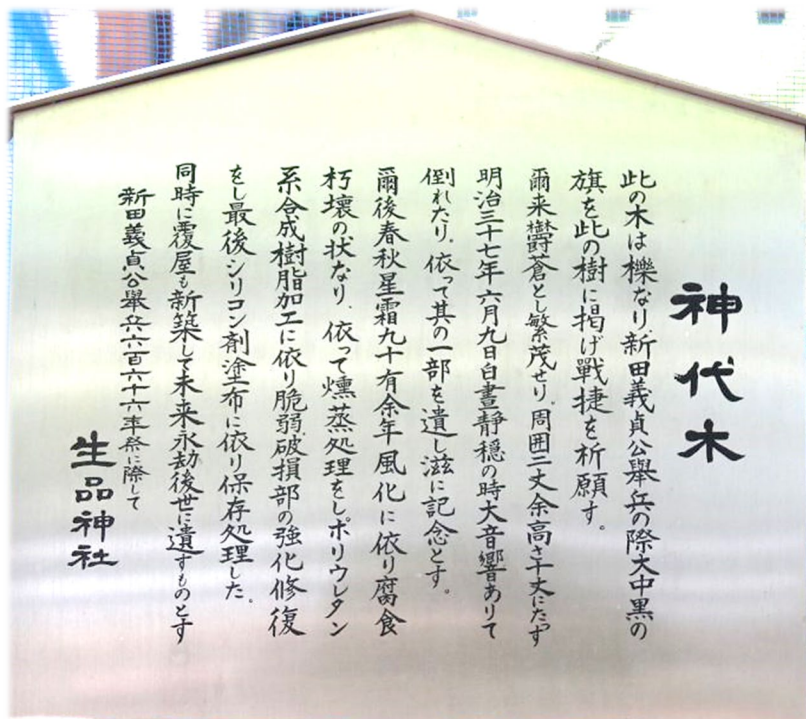 神代木
此の木は櫟なり.新田義貞公舉兵の際大中黒の
旗を此の樹に掲げ戰捷を祈願す。
爾来欝蒼とし繁茂せり.周囲三丈余高さ十丈にたつす
明治三十七年六月九日白晝静穏の時大音響ありて
倒れたり.依って其の一部を遺し滋に記念とす。
爾後春秋星霜九十有余年風化に依り腐食
朽壊の状なり.依って燻蒸処理をしポリウレタン
系合成樹脂加工に依り脆弱破損部の強化修復
をし最後シリコン剤塗布に依り保存処理した.
同時に覆屋も新築して未来永劫後世に遺すものとす
新田義貞公舉兵六百六十六年祭に際して
生品神社